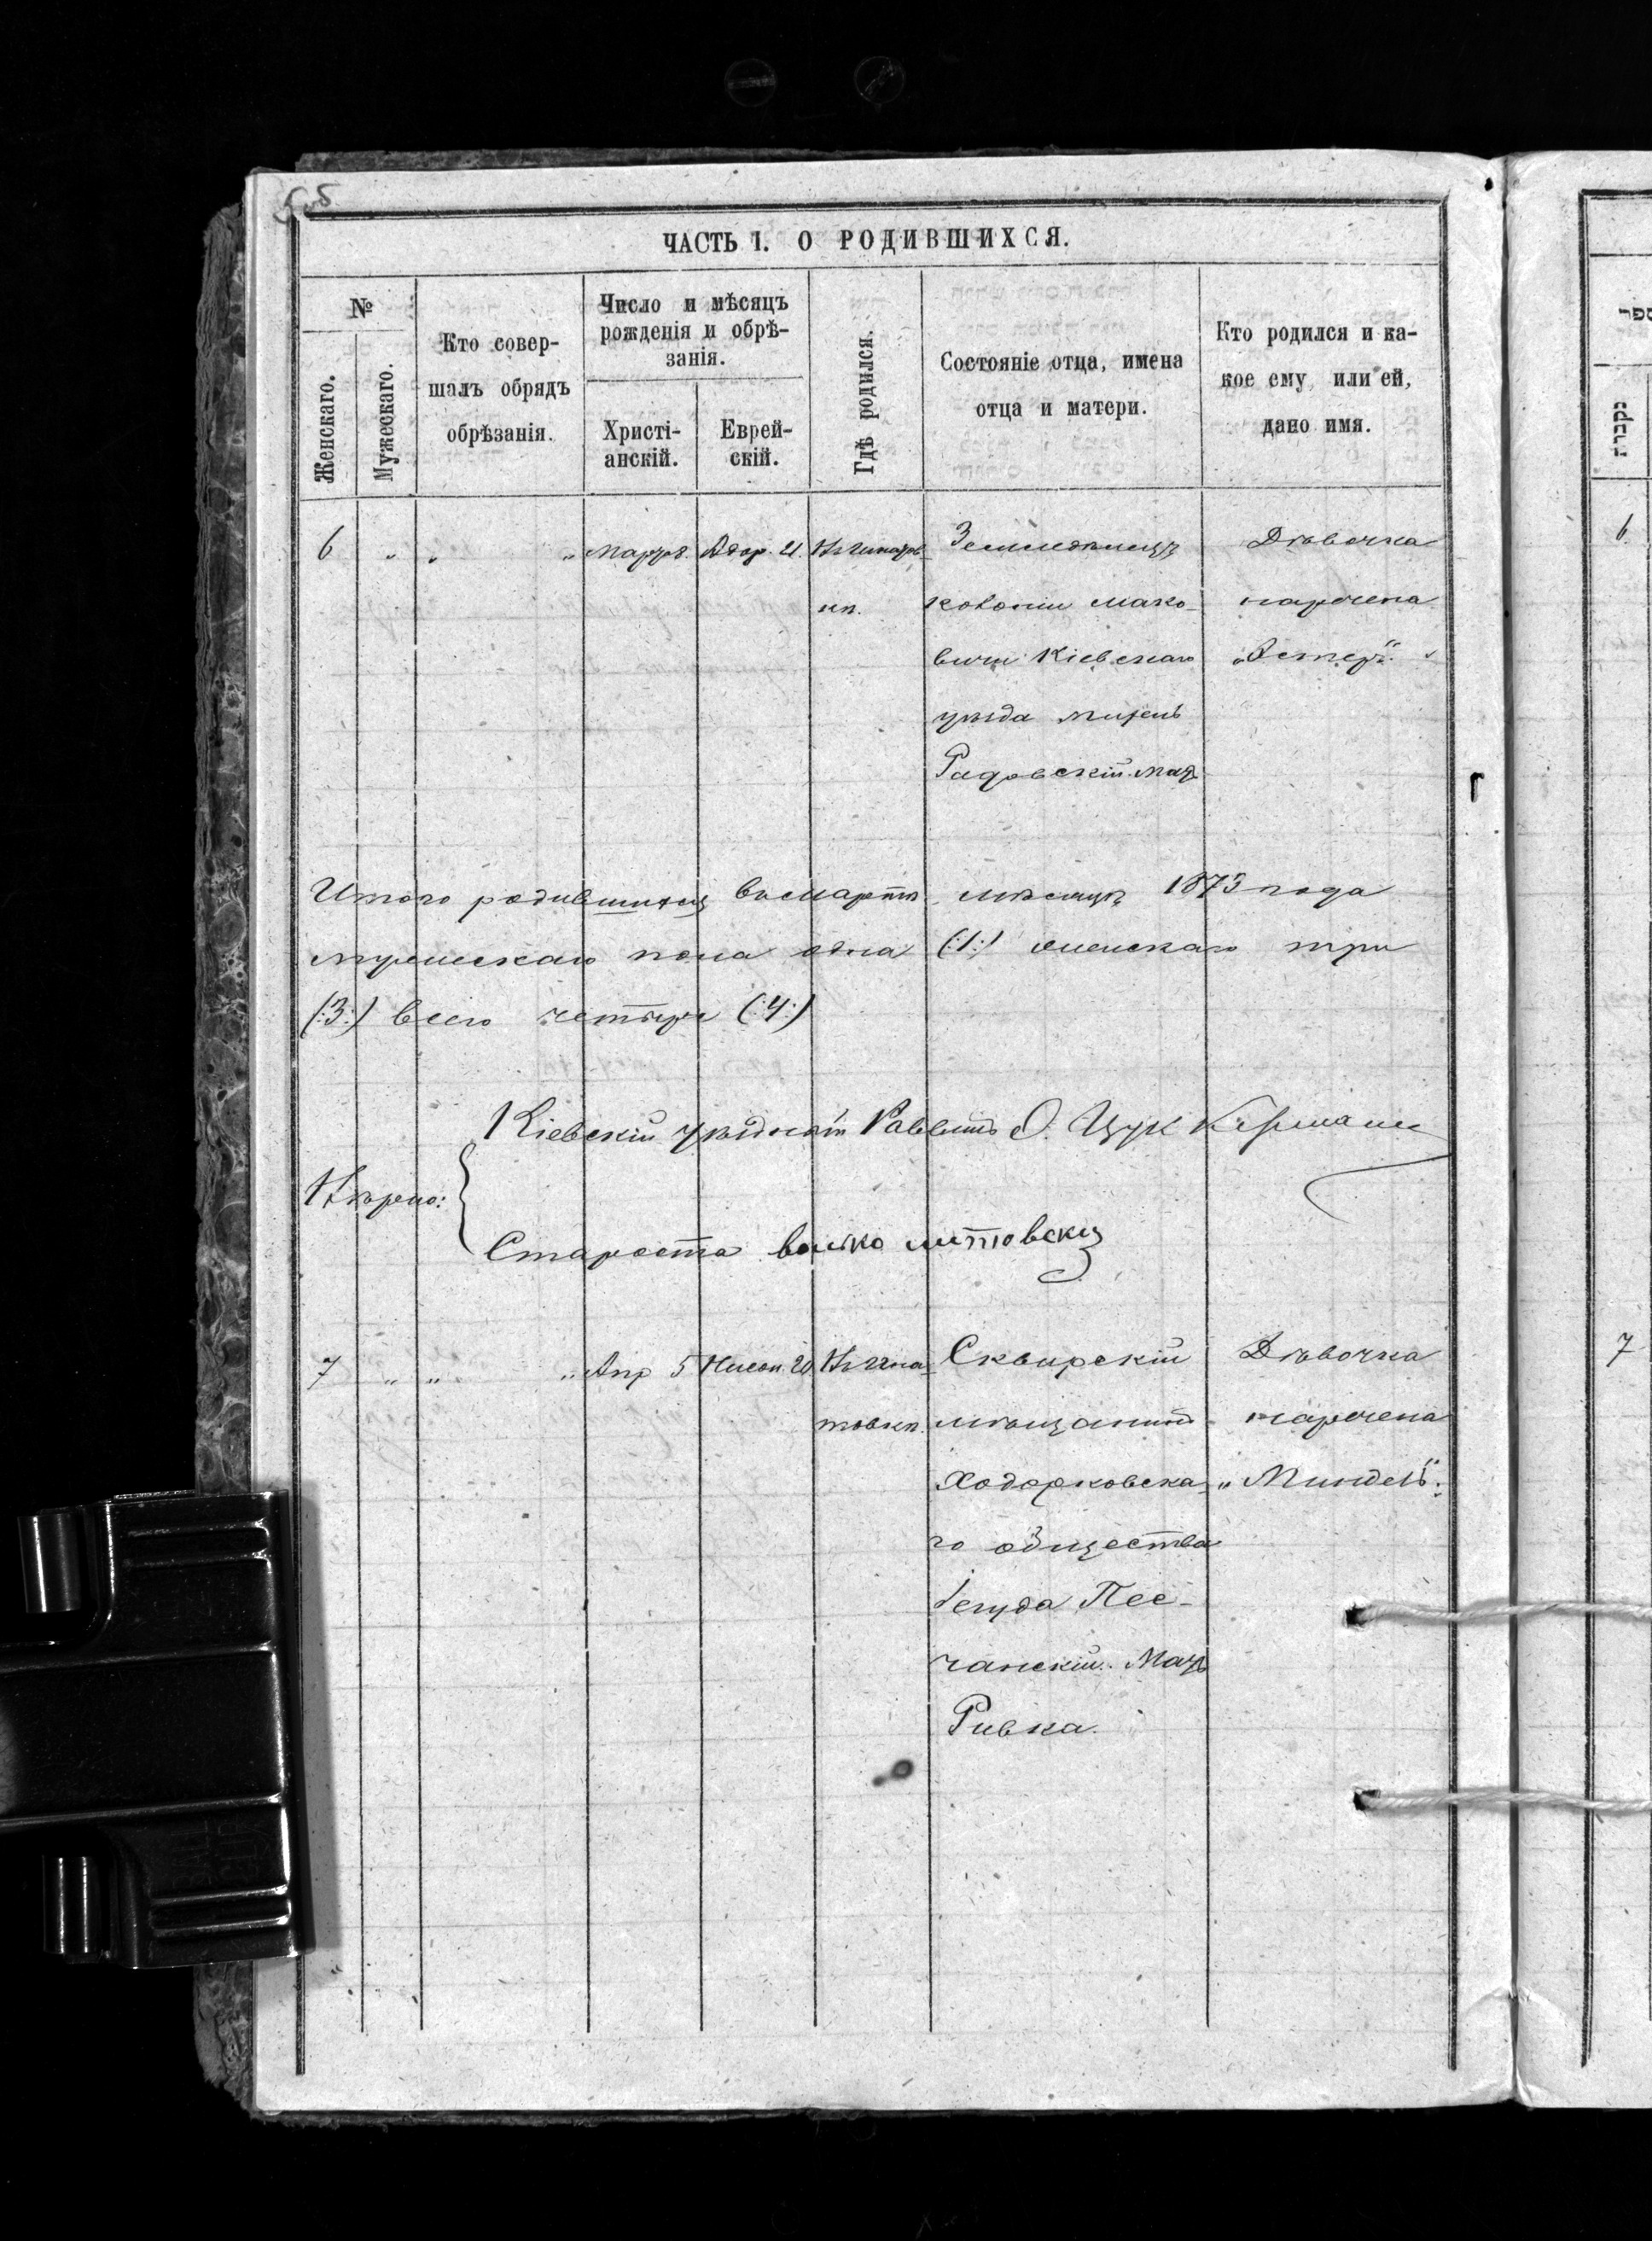 ЧАСТЬ I. О РОДИВШИХСЯ.
№
Женскаго.
Мужескаго.
Кто совер-
шалъ обрядъ
обрѣзанія.
Число и мѣсяцъ
рожденія и обрѣ-
занія.
Христі-
анскій.
Еврей-
скій.
Гдѣ родился.
Состояніе отца, имена
отца и матери.
Кто родился и ка-
кое ему или ей,
дано имя.
6 " " " Адар. 21
Земледѣлецъ
колоніи Мако-
вичи Кіевскаго
уѣзда
Радовскій. Мать
Дѣвочка
наречена
"Эстеръ".
Итого родившихся въ Мартѣ мѣсяцѣ 1873 года
мужескаго пола одна (:1:) женскаго три
(:3:) всего четыре (:4:)
Кіевскій уѣздный Раввинъ О. Цукерманъ
Вѣрно:
Староста Волько Литовскій
7 " " " Апр 5 Нисон. 20 Въ Игна-
товкѣ.
Сквирскій
мѣщанинъ
Ходорковска-
го общества
Іегуда Пес-
чанскій. Мать
Ривка.
Дѣвочка
наречена
"Миндель".
6
7
ספר
נקבות